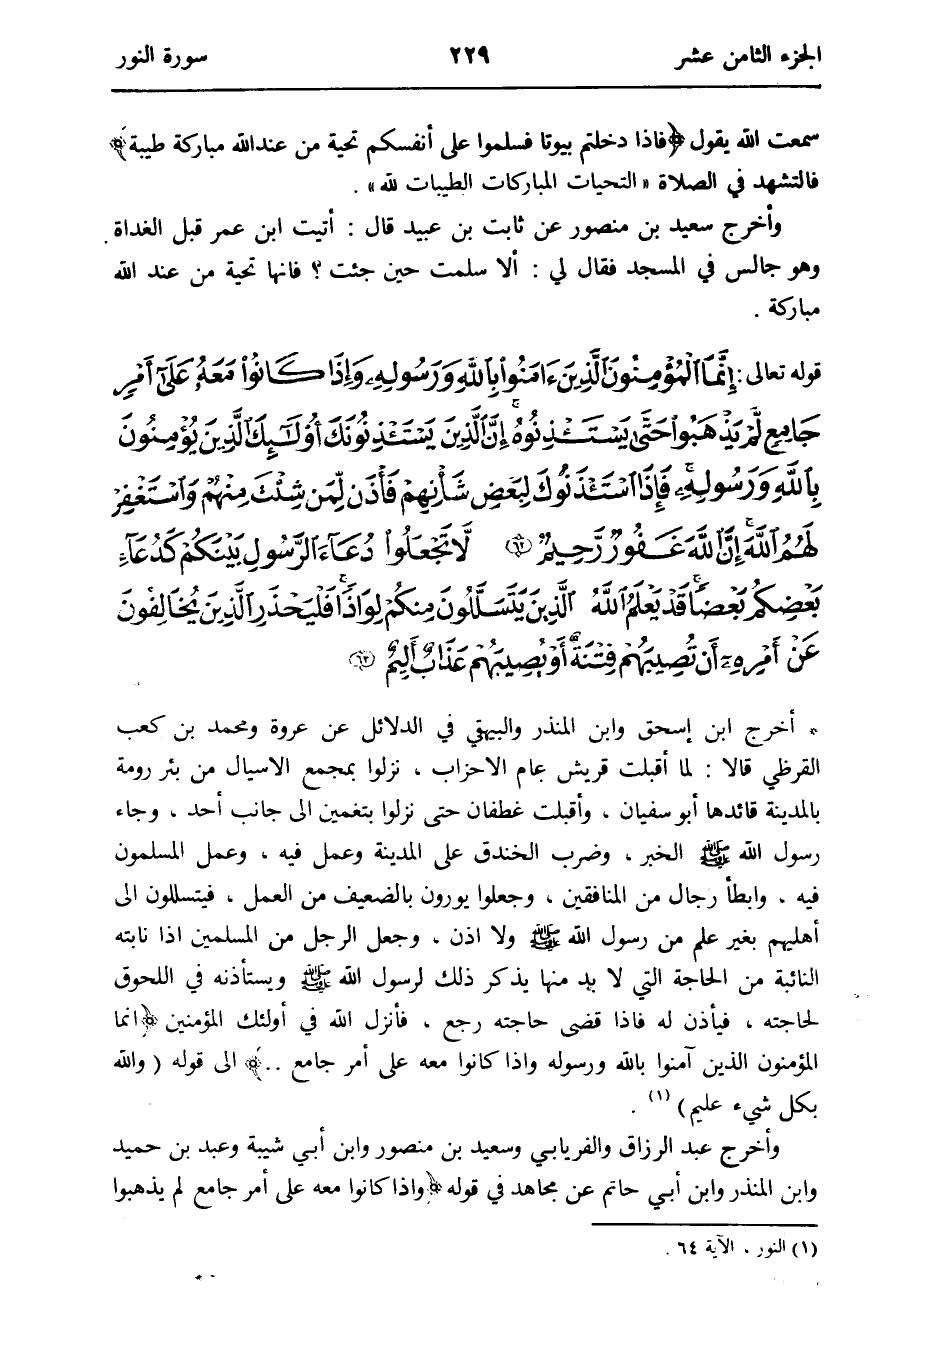 الجزء الثامن عشر ٢٢٩ سورة النور
سمعت الله يقول ﴿فاذا دخلتم بيوتا فسلموا على أنفسكم تحية من عندالله مباركة طيبة﴾
فالتشهد في الصلاة « التحيات المباركات الطيبات لله» .
وأخرج سعيد بن منصور عن ثابت بن عبيد قال : أتيت ابن عمر قبل الغداة
وهو جالس في المسجد فقال لي : ألا سلمت حين جئت ؟ فانها تحية من عند الله
مباركة .
قوله تعالى : إِنَّمَا ٱلْمُؤْمِنُونَ ٱلَّذِينَ ءَامَنُوا۟ بِٱللَّهِ وَرَسُولِهِۦ وَإِذَا كَانُوا۟ مَعَهُۥ عَلَىٰٓ أَمْرٍ
جَامِعٍ لَّمْ يَذْهَبُوا۟ حَتَّىٰ يَسْتَـْٔذِنُوهُ ۚ إِنَّ ٱلَّذِينَ يَسْتَـْٔذِنُونَكَ أُو۟لَٰٓئِكَ ٱلَّذِينَ يُؤْمِنُونَ
بِٱللَّهِ وَرَسُولِهِۦ ۚ فَإِذَا ٱسْتَـْٔذَنُوكَ لِبَعْضِ شَأْنِهِمْ فَأْذَن لِّمَن شِئْتَ مِنْهُمْ وَٱسْتَغْفِرْ
لَهُمُ ٱللَّهَ ۚ إِنَّ ٱللَّهَ غَفُورٌ رَّحِيمٌ ﴿٦٢﴾ لَّا تَجْعَلُوا۟ دُعَآءَ ٱلرَّسُولِ بَيْنَكُمْ كَدُعَآءِ
بَعْضِكُم بَعْضًا ۚ قَدْ يَعْلَمُ ٱللَّهُ ٱلَّذِينَ يَتَسَلَّلُونَ مِنكُمْ لِوَاذًا ۚ فَلْيَحْذَرِ ٱلَّذِينَ يُخَالِفُونَ
عَنْ أَمْرِهِۦٓ أَن تُصِيبَهُمْ فِتْنَةٌ أَوْ يُصِيبَهُمْ عَذَابٌ أَلِيمٌ ﴿٦٣﴾
* أخرج ابن إسحق وابن المنذر والبيهقي في الدلائل عن عروة ومحمد بن كعب
القرظي قالا : لما أقبلت قريش عام الاحزاب ، نزلوا بمجمع الاسيال من بئر رومة
بالمدينة قائدها أبو سفيان ، وأقبلت غطفان حتى نزلوا بتغمين الى جانب أحد ، وجاء
رسول الله ﷺ الخبر ، وضرب الخندق على المدينة وعمل فيه ، وعمل المسلمون
فيه ، وابطأ رجال من المنافقين ، وجعلوا يورون بالضعيف من العمل ، فيتسللون الى
أهليهم بغير علم من رسول الله ﷺ ولا اذن ، وجعل الرجل من المسلمين اذا نابته
النائبة من الحاجة التي لا بد منها يذكر ذلك لرسول الله ﷺ ويستأذنه في اللحوق
لحاجته ، فيأذن له فاذا قضى حاجته رجع ، فأنزل الله في أولئك المؤمنين ﴿انما
المؤمنون الذين آمنوا بالله ورسوله واذا كانوا معه على أمر جامع ..﴾ الى قوله ( والله
بكل شيء عليم) (١) .
وأخرج عبد الرزاق والفريابي وسعيد بن منصور وابن أبي شيبة وعبد بن حميد
وابن المنذر وابن أبي حاتم عن مجاهد في قوله ﴿واذا كانوا معه على أمر جامع لم يذهبوا
(١) النور ، الآية ٦٤ .